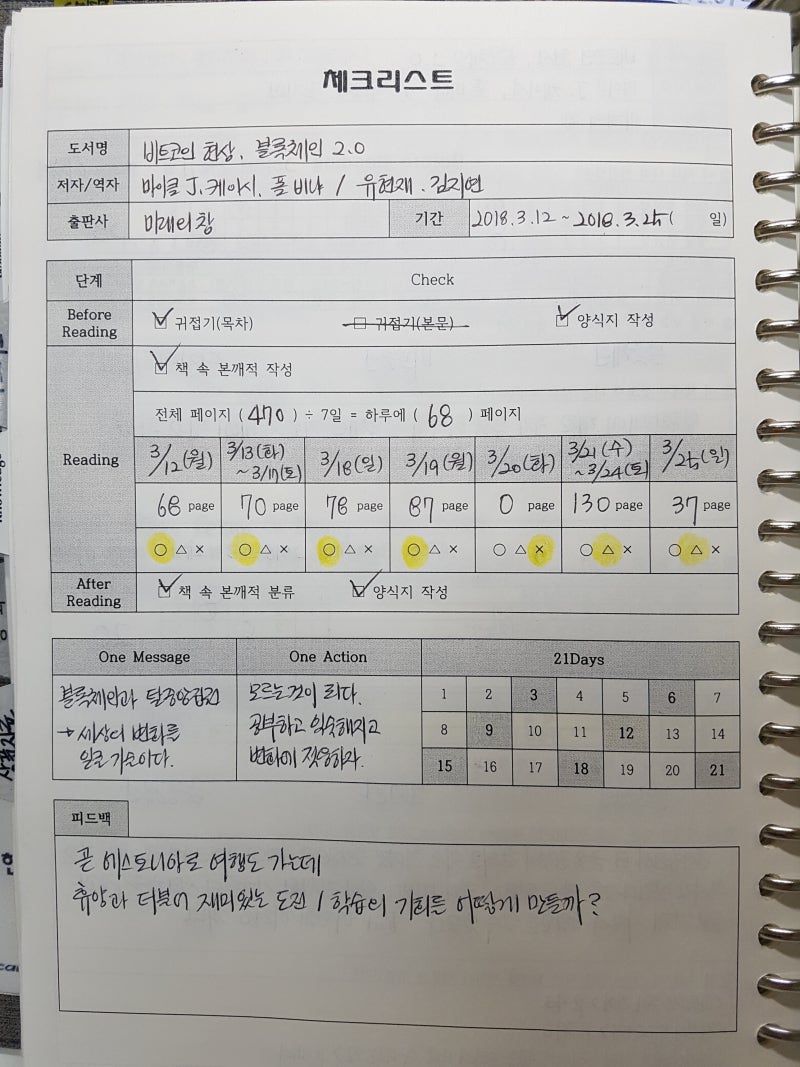 체크리스트
도서명 비트코인 현상, 블록체인 2.0
저자/역자 마이클 J.케이시, 폴 비냐 / 유현재. 김지연
출판사 미래의창 기간 2018.3.12 ~ 2018.3.25( 일)
단계 Check
Before Reading ☑ 귀접기(목차) ☐ 귀접기(본문) ☑ 양식지 작성
☑ 책 속 본깨적 작성
전체 페이지 ( 470 ) ÷ 7일 = 하루에 ( 68 ) 페이지
Reading 3/12(월) 3/13(화) ~ 3/17(토) 3/18(일) 3/19(월) 3/20(화) 3/21(수) ~ 3/24(토) 3/25(일)
68 page 70 page 78 page 87 page 0 page 130 page 37 page
○ △ × ○ △ × ○ △ × ○ △ × ○ △ × ○ △ × ○ △ ×
After Reading ☑ 책 속 본깨적 분류 ☑ 양식지 작성
One Message One Action 21Days
블록체인과 탈중앙집권
→ 세상의 변화를
일으킨 기술이다.
모르는것이 죄다.
공부하고 익숙해지고
변화에 적응하자.
1 2 3 4 5 6 7
8 9 10 11 12 13 14
15 16 17 18 19 20 21
피드백
곧 에스토니아로 여행도 가는데
휴양과 더불어 재미있는 도전 / 학습의 기회를 어떻게 만들까?